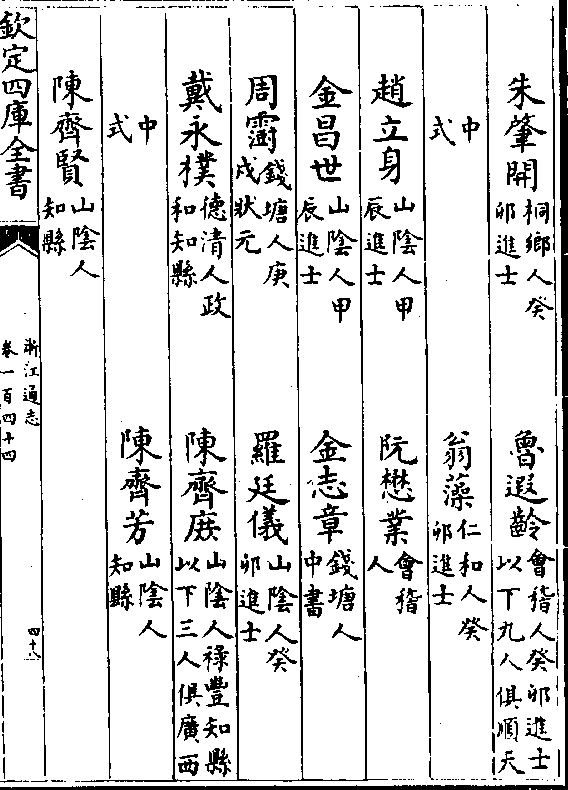 朱肇開 桐鄉人癸卯進士 魯遐齡 會稽人癸卯進士以下九人俱順天
中式 翁藻 仁和人癸卯進士
趙立身 山陰人甲辰進士 阮懋業 會稽人
金昌世 山陰人甲辰進士 金志章 錢塘人中書
周霌 錢塘人庚戌狀元 羅廷儀 山陰人癸卯進士
戴永樸 德清人政和知縣 陳齊庻 山陰人祿豐知縣以下三人俱廣西
中式 陳齊芳 山陰人知縣
陳齊賢 山陰人知縣
欽定四庫全書 浙江通志 卷一百四十四 四十八